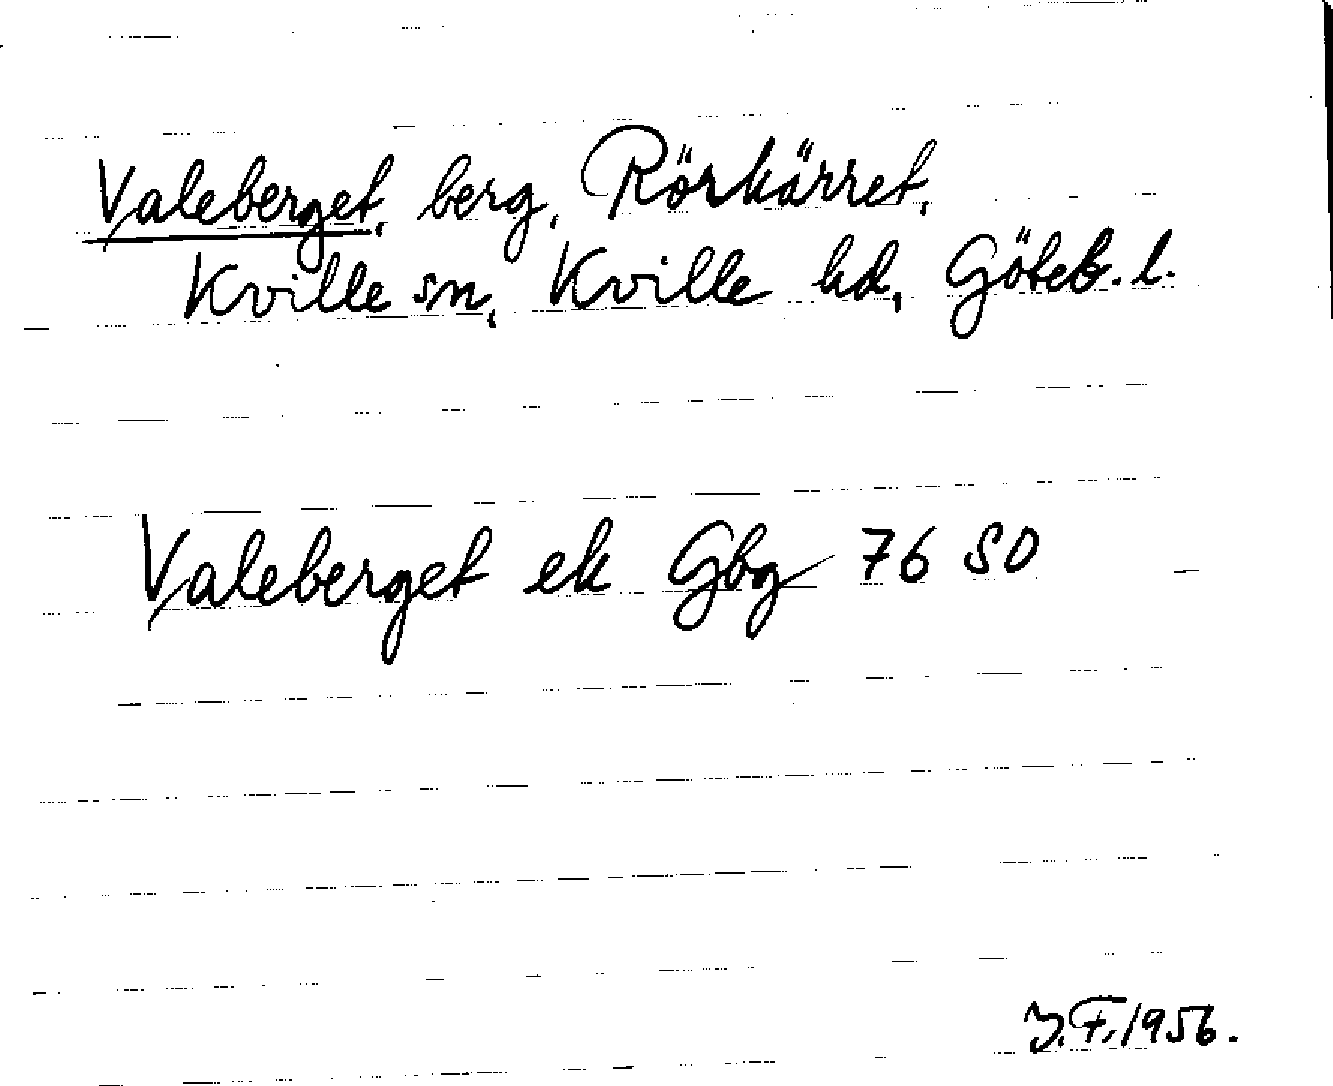 Valeberget, berg, Rörkärret,
Kville sn, Kville hd, Göteb. l.
Valeberget ek Gbg 76 SO
J.F. 1956.